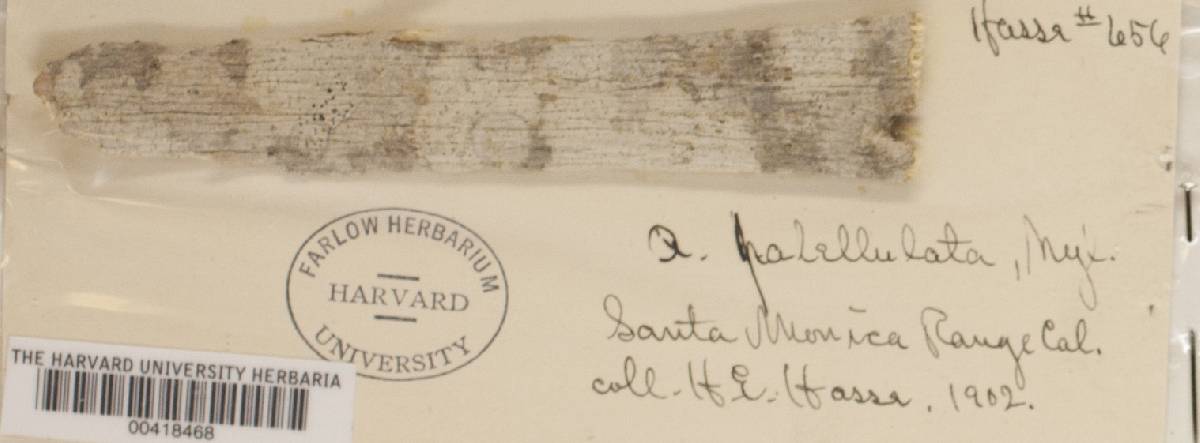 Hasse # 656
FARLOW HERBARIUM
HARVARD
UNIVERSITY
a. patellulata, Nyl.
Santa Monica Range Cal.
coll. H.E. Hasse. 1902.
THE HARVARD UNIVERSITY HERBARIA
00418468